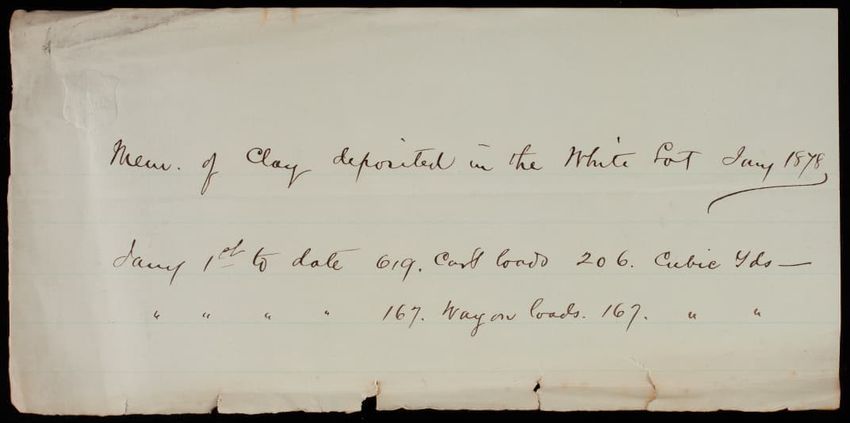 Mem. of Clay deposited in the White Lot Jany 1878
Jany 1st to date 619. Cart loads 206. Cubic Yds —
" " " " 167. Wagon loads. 167. " "